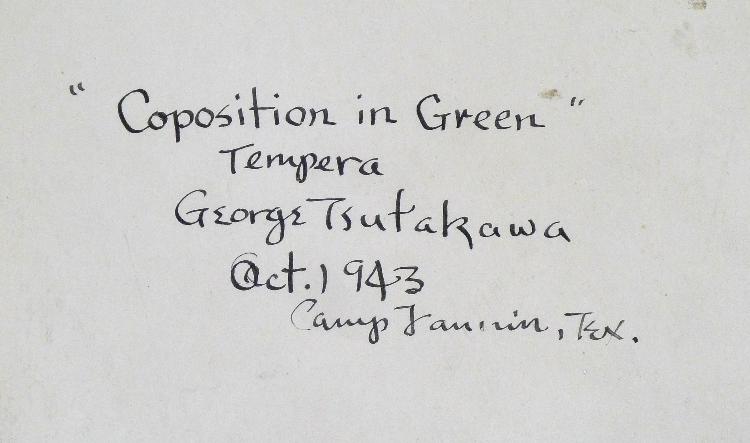 "Coposition in Green"
Tempera
George Tsutakawa
Oct. 1943
Camp Fannin, Tex.